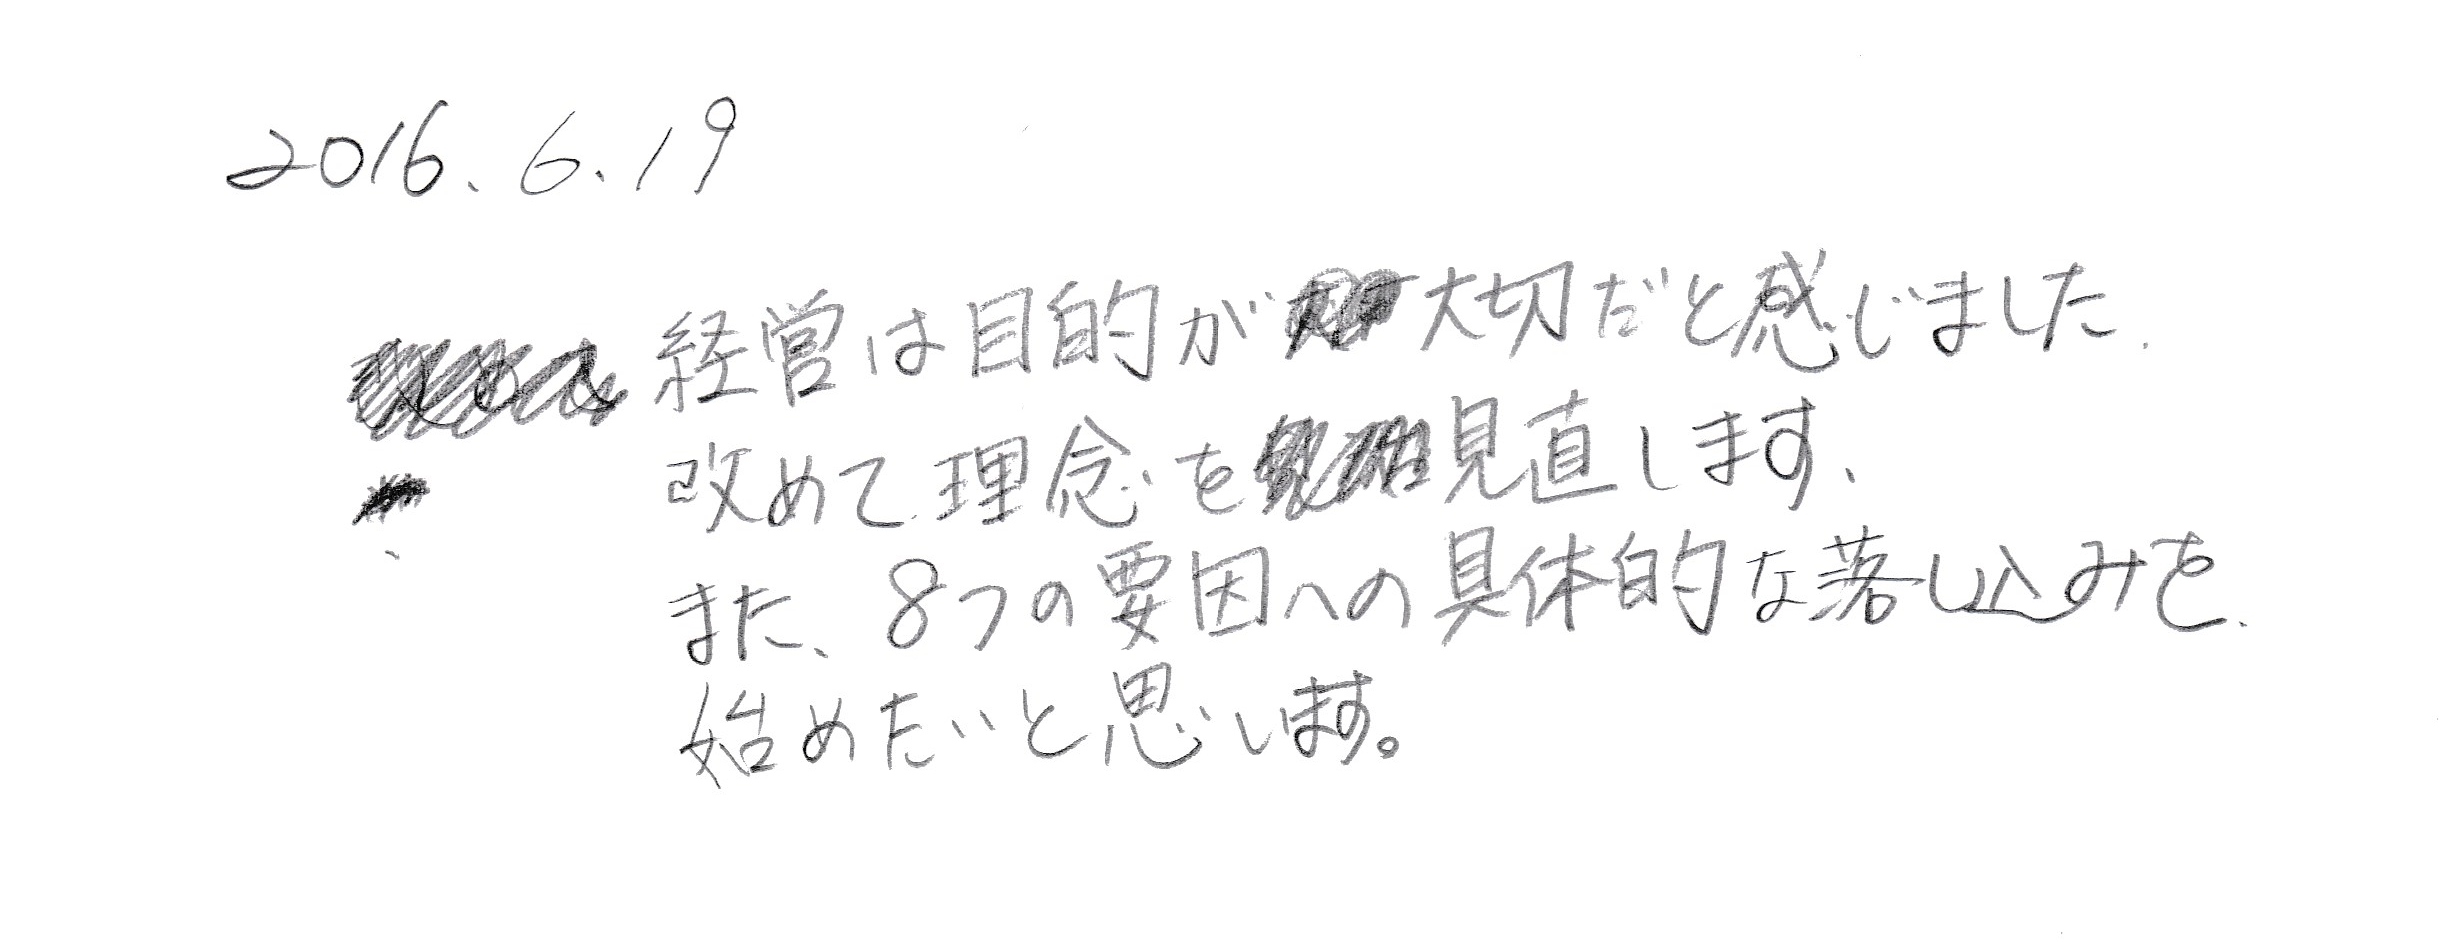 2016.6.19
経営は目的が大切だと感じました.
改めて理念を見直します、
また、8つの要因への具体的な落し込みを
始めたいと思します。